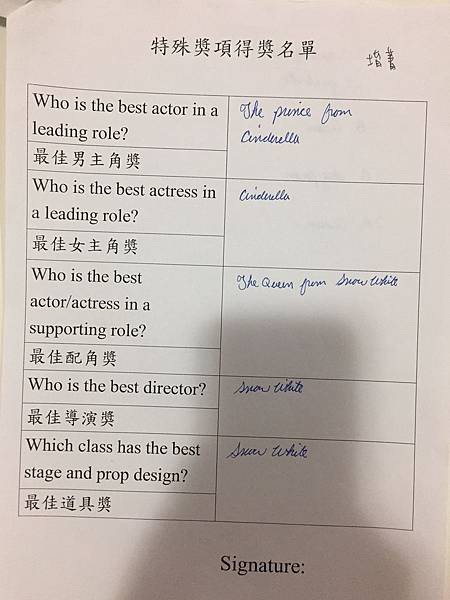 特殊獎項得獎名單
Who is the best actor in a
leading role?
最佳男主角獎
The prince from
Cinderella
Who is the best actress in
a leading role?
最佳女主角獎
Cinderella
Who is the best
actor/actress in a
supporting role?
最佳配角獎
The Queen from Snow White
Who is the best director?
最佳導演獎
Snow White
Which class has the best
stage and prop design?
最佳道具獎
Snow White
Signature: